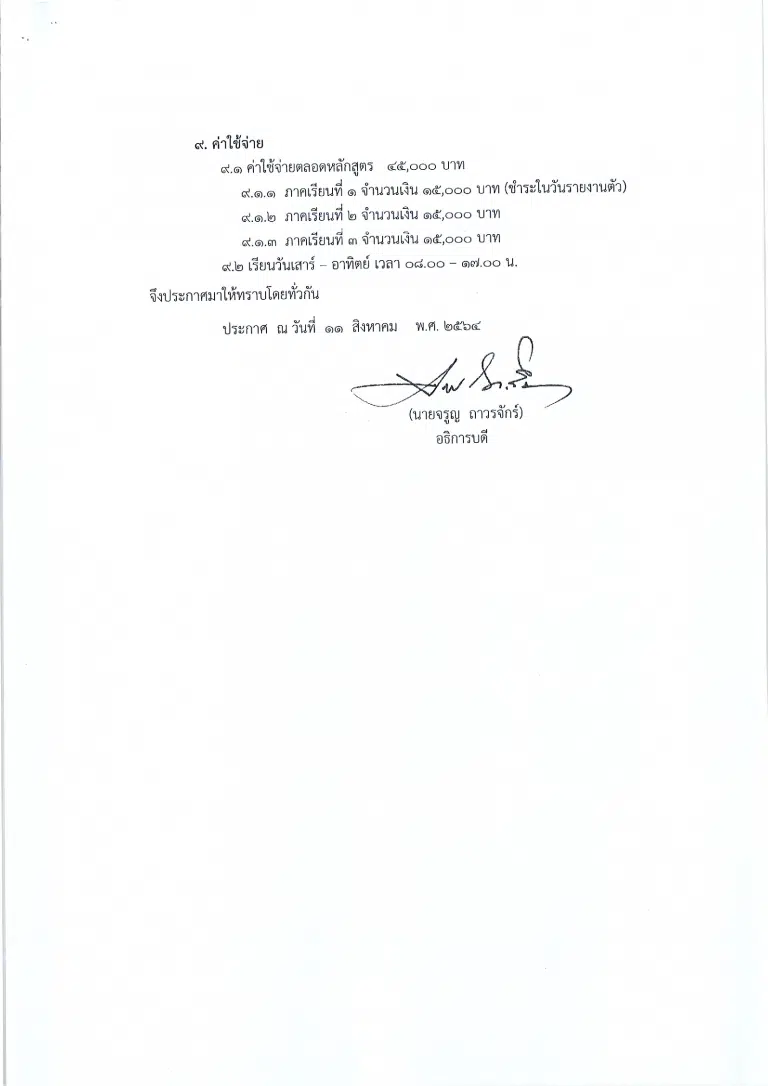 ๙. ค่าใช้จ่าย
๙.๑ ค่าใช้จ่ายตลอดหลักสูตร ๔๕,๐๐๐ บาท
๙.๑.๑ ภาคเรียนที่ ๑ จำนวนเงิน ๑๕,๐๐๐ บาท (ชำระในวันรายงานตัว)
๙.๑.๒ ภาคเรียนที่ ๒ จำนวนเงิน ๑๕,๐๐๐ บาท
๙.๑.๓ ภาคเรียนที่ ๓ จำนวนเงิน ๑๕,๐๐๐ บาท
๙.๒ เรียนวันเสาร์ – อาทิตย์ เวลา ๐๘.๐๐ – ๑๗.๐๐ น.
จึงประกาศมาให้ทราบโดยทั่วกัน
ประกาศ ณ วันที่ ๑๑ สิงหาคม พ.ศ. ๒๕๖๔
(นายจรูญ ถาวรจักร์)
อธิการบดี